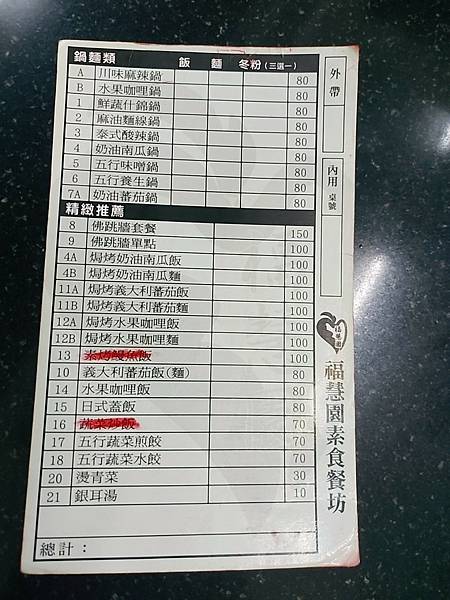 鍋麵類 飯 麵 冬粉(三選一)
A 川味麻辣鍋 80
B 水果咖哩鍋 80
1 鮮蔬什錦鍋 80
2 麻油麵線鍋 80
3 泰式酸辣鍋 80
4 奶油南瓜鍋 80
5 五行味噌鍋 80
6 五行養生鍋 80
7A 奶油蕃茄鍋 80
精緻推薦
8 佛跳牆套餐 150
9 佛跳牆單點 100
4A 焗烤奶油南瓜飯 100
4B 焗烤奶油南瓜麵 100
11A 焗烤義大利蕃茄飯 100
11B 焗烤義大利蕃茄麵 100
12A 焗烤水果咖哩飯 100
12B 焗烤水果咖哩麵 100
13 素烤鰻魚飯 100
10 義大利蕃茄飯(麵) 80
14 水果咖哩飯 80
15 日式蓋飯 80
16 蔬菜炒飯 70
17 五行蔬菜煎餃 70
18 五行蔬菜水餃 70
20 燙青菜 30
21 銀耳湯 10
總計：
外帶
內用 桌號
福慧園
福慧園素食餐坊